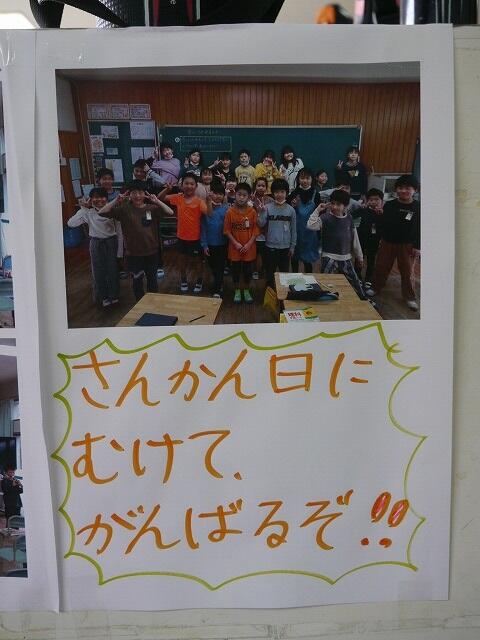 さんかん日に
むけて、
がんばるぞ!!